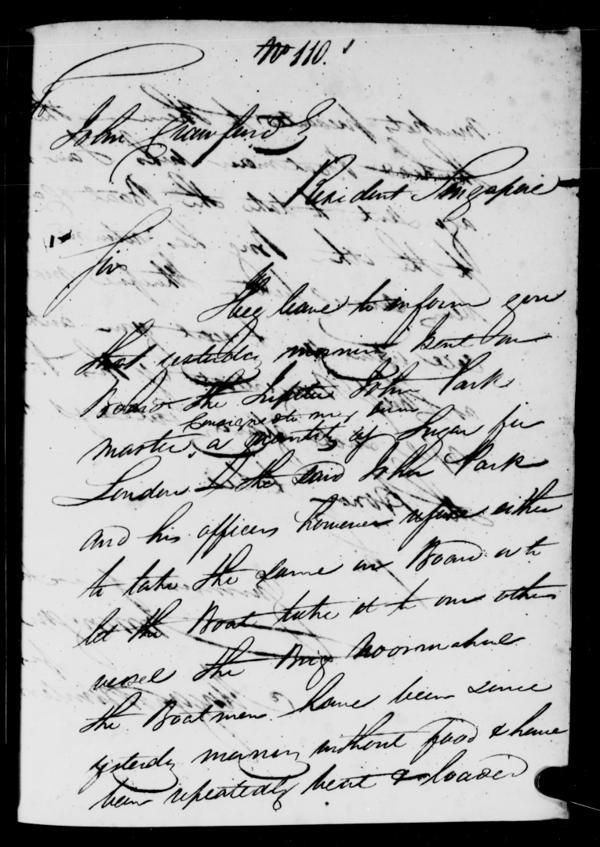 No 110.
To
John Crawfurd
Resident Singapore
Sir
I beg leave to inform you
that yesterday morning I sent on
Board the Jupiter John Park
master, a quantity of Sugar for
London & the said John Park
and his officers however refuse either
to take the same on Board or to
let the Boat take it to our other
vessel the Brig Noormahul
the Boatmen have been since
yesterday morning without food & have
been repeatedly beat &